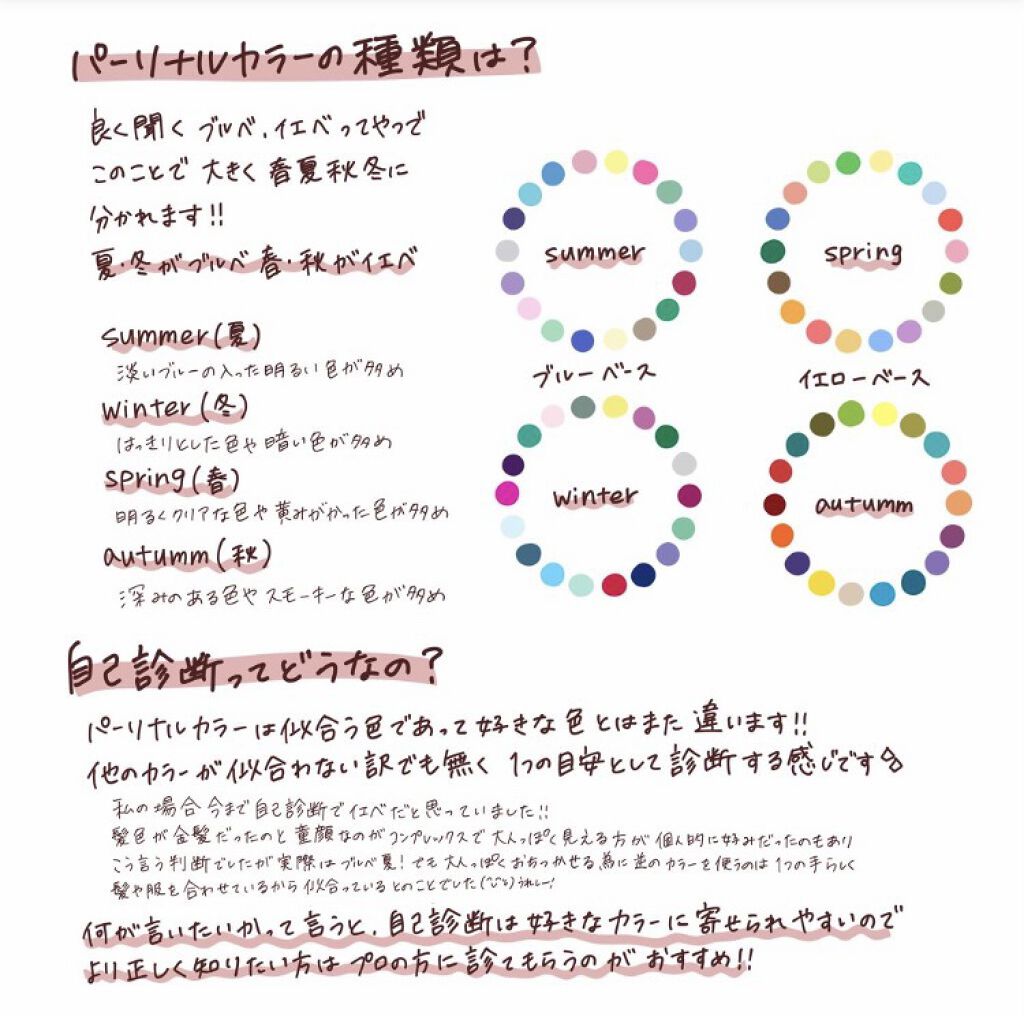 パーソナルカラーの種類は?
良く聞く ブルベ、イエベってやつで
このことで 大きく 春夏秋冬に
分かれます!!
夏・冬がブルベ 春・秋がイエベ
summer(夏)
淡いブルーの入った明るい色が多め
winter(冬)
はっきりとした色や暗い色が多め
spring(春)
明るくクリアな色や黄みがかった色が多め
autumm(秋)
深みのある色やスモーキーな色が多め
summer
spring
ブルーベース
イエローベース
winter
autumm
自己診断ってどうなの?
パーソナルカラーは似合う色であって好きな色とはまた違います!!
他のカラーが似合わない訳でも無く 1つの目安として診断する感じです
私の場合 今まで自己診断でイエベだと思っていました!!
髪色が金髪だったのと童顔なのがコンプレックスで大人っぽく見える方が個人的に好みだったのもあり
こう言う判断でしたが実際はブルベ夏! でも大人っぽくおちつかせる為に逆のカラーを使うのは1つの手らしく
髪や服を合わせているから似合っているとのことでした うれしー!
何が言いたいかって言うと、自己診断は好きなカラーに寄せられやすいので
より正しく知りたい方はプロの方に診てもらうのがおすすめ!!